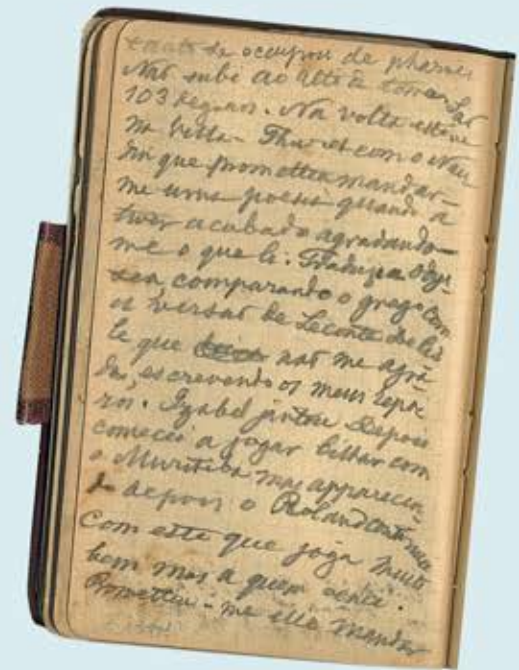 tanto se occupou de phares
Não subi ao alto da torre. São
103 degraos. Na volta estive
na Villa-Thuret com o Nau
din que prometteu mandar-
me uma poesia quando a
tiver acabado agradando-
me o que li. Traduzi a Odys
sea, comparando o grego com
a versão de Leconte de Lis
le que não me agra
da, escrevendo os meus repa
ros. Izabel jantou. Depois
comecei a jogar bilhar com
o Muritiba mas apparecen
do depois o Roland continuei
com este que joga muito
bem mas a quem venci.
Prometteu-me elle mandar